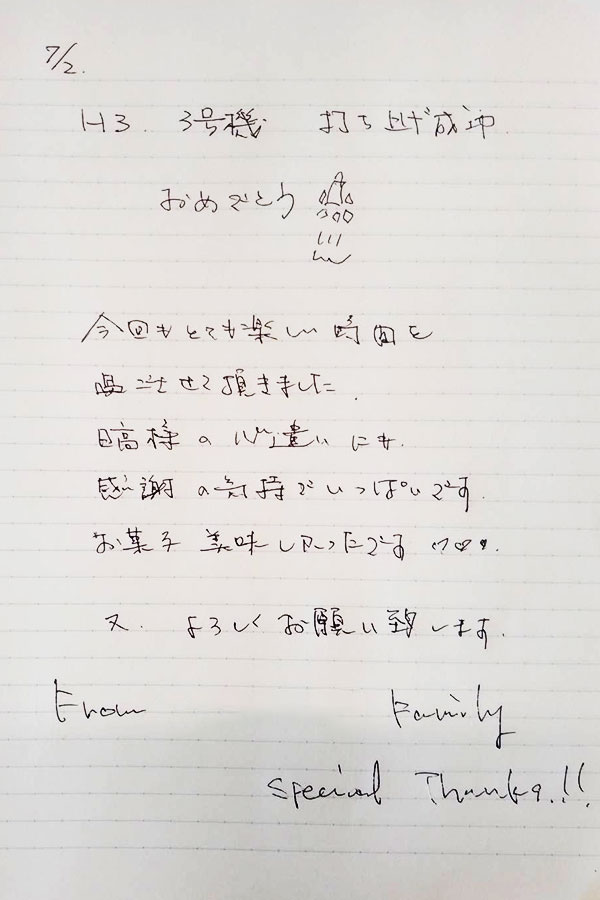 7/2.
H3. 3号機 打ち上げ成功
おめでとう
今回もとても楽しい時間を
過ごさせて頂きました.
日高様の心遣いにも.
感謝の気持でいっぱいです.
お菓子 美味しかったです ♡♡♡.
又. よろしくお願い致します.
From Family
Special Thanks.!!